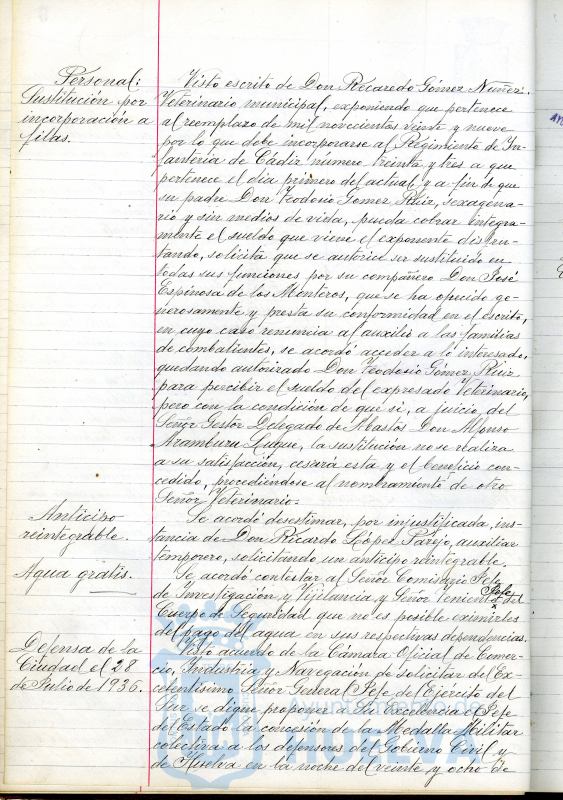 Personal:
Sustitución por
incorporación a
filas.
Visto escrito de Don Recaredo Gómez Nuñez.
Veterinario municipal, exponiendo que pertenece
al reemplazo de mil novecientos veinte y nueve
por lo que debe incorporarse al Regimiento de In-
fantería de Cádiz número treinta y tres a que
pertenece el dia primero del actual, y a fin de que
su padre Don Teodosio Gomez Ruiz, sexagena-
rio y sin medios de vida, pueda cobrar integra-
mente el sueldo que viene el exponente disfru-
tando, solicita que se autorice ser sustituido en
todas sus funciones por su compañero Don José
Espinosa de los Monteros, que se ha ofrecido ge-
nerosamente y presta su conformidad en el escrito,
en cuyo caso renuncia al auxilio a las familias
de combatientes, se acordó acceder a lo interesado,
quedando autorizado Don Teodosio Gómez Ruiz
para percibir el sueldo del expresado Veterinario,
pero con la condición de que si, a juicio, del
Señor Gestor Delegado de Abastos Don Alfonso
Aramburu Luque, la sustitución no se realiza
a su satisfacción, cesará esta y el beneficio con-
cedido, procediéndose al nombramiento de otro
Señor Veterinario.
Anticipo
reintegrable.
Se acordó desestimar, por injustificada, ins-
tancia de Don Ricardo López Parejo, auxiliar
temporero, solicitando un anticipo reintegrable.
Agua gratis.
Se acordó contestar al Señor Comisario Jefe
de Investigación y Vigilancia y Señor Teniente Jefe del
Cuerpo de Seguridad que no es posible eximirles
del pago del agua en sus respectivas dependencias.
Defensa de la
Ciudad el 28
de Julio de 1936.
Visto acuerdo de la Cámara Oficial de Comer-
cio, Industria y Navegación de solicitar del Ex-
celentísimo Señor General Jefe del Ejército del
Sur se digne proponer a Su Excelencia el Jefe
del Estado la concesión de la Medalla Militar
colectiva a los defensores del Gobierno Civil y
de Huelva en la noche del veinte y ocho de